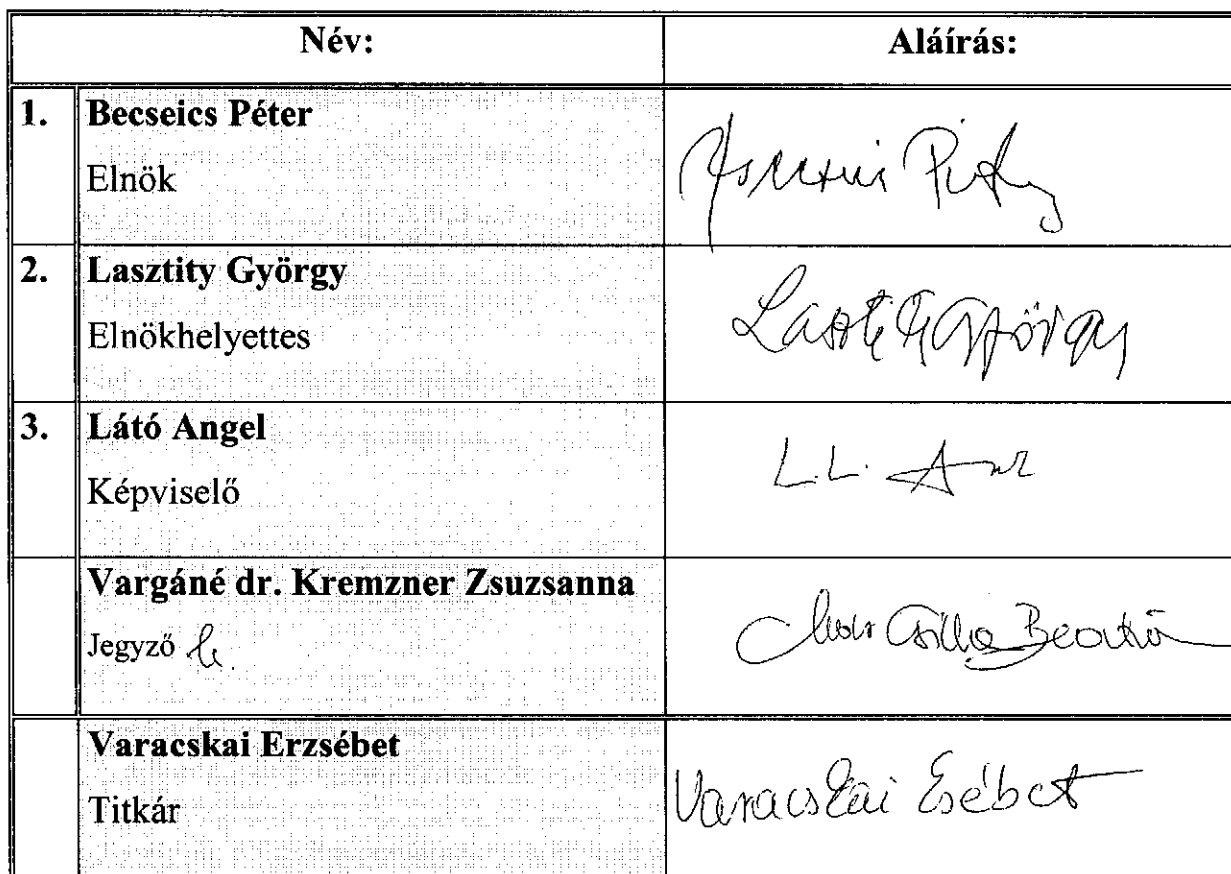 Név: Aláírás:
1. Becseics Péter
Elnök
2. Lasztity György
Elnökhelyettes
Lasztity György
3. Látó Angel
Képviselő
L. L.
Vargáné dr. Kremzner Zsuzsanna
Jegyző h.
Csilla Beatrix
Varacskai Erzsébet
Titkár
Varacskai Esébet